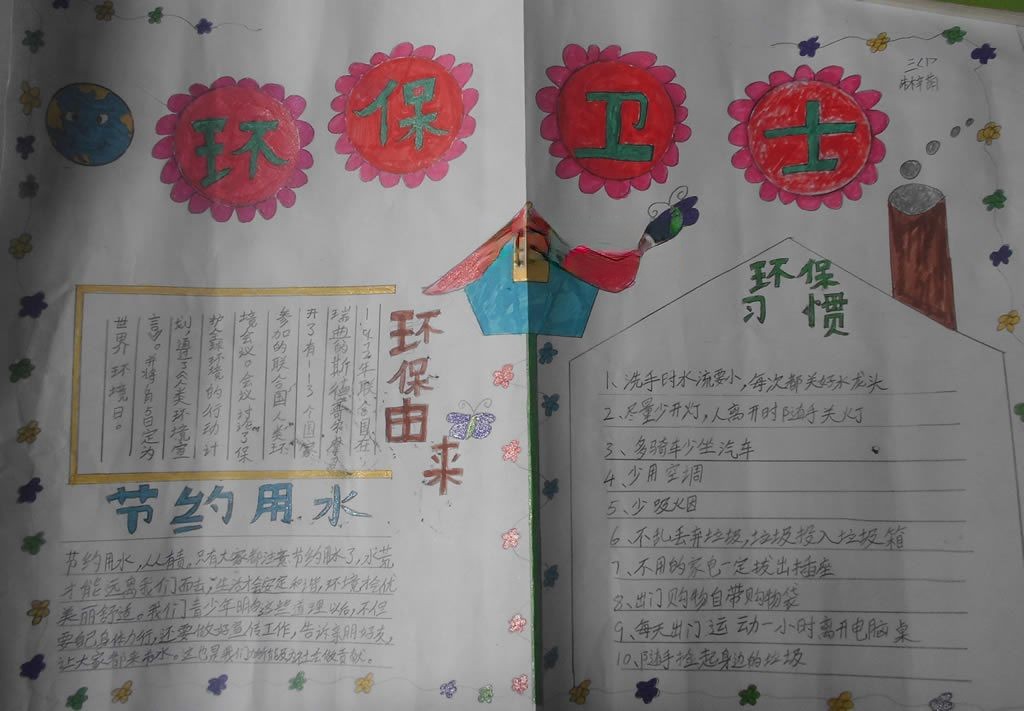 环保卫士
二(1)
环保由来
1972年联合国在
瑞典的斯德哥尔摩召
开了有113个国家
参加的联合国人类环
境会议。会议讨论了保
护全球环境的行动计
划，通过了《人类环境宣
言》。并将6月5日定为
世界环境日。
节约用水
节约用水，人人有责。只有大家都注意节约用水了，水荒
才能远离我们而去，生活才会安定和谐，环境才会优
美丽舒适。我们青少年明白这些道理以后，不但
要自己身体力行，还要做好宣传工作，告诉亲朋好友，
让大家都来节水。这也是我们力所能及为社会做贡献。
环保
习惯
1、洗手时水流要小，每次都关好水龙头
2、尽量少开灯，人离开时随手关灯
3、多骑车少坐汽车
4、少用空调
5、少吸烟
6、不乱丢弃垃圾，垃圾投入垃圾箱
7、不用的家电一定拔出插座
8、出门购物自带购物袋
9、每天出门运动一小时离开电脑桌
10、随手捡起身边的垃圾